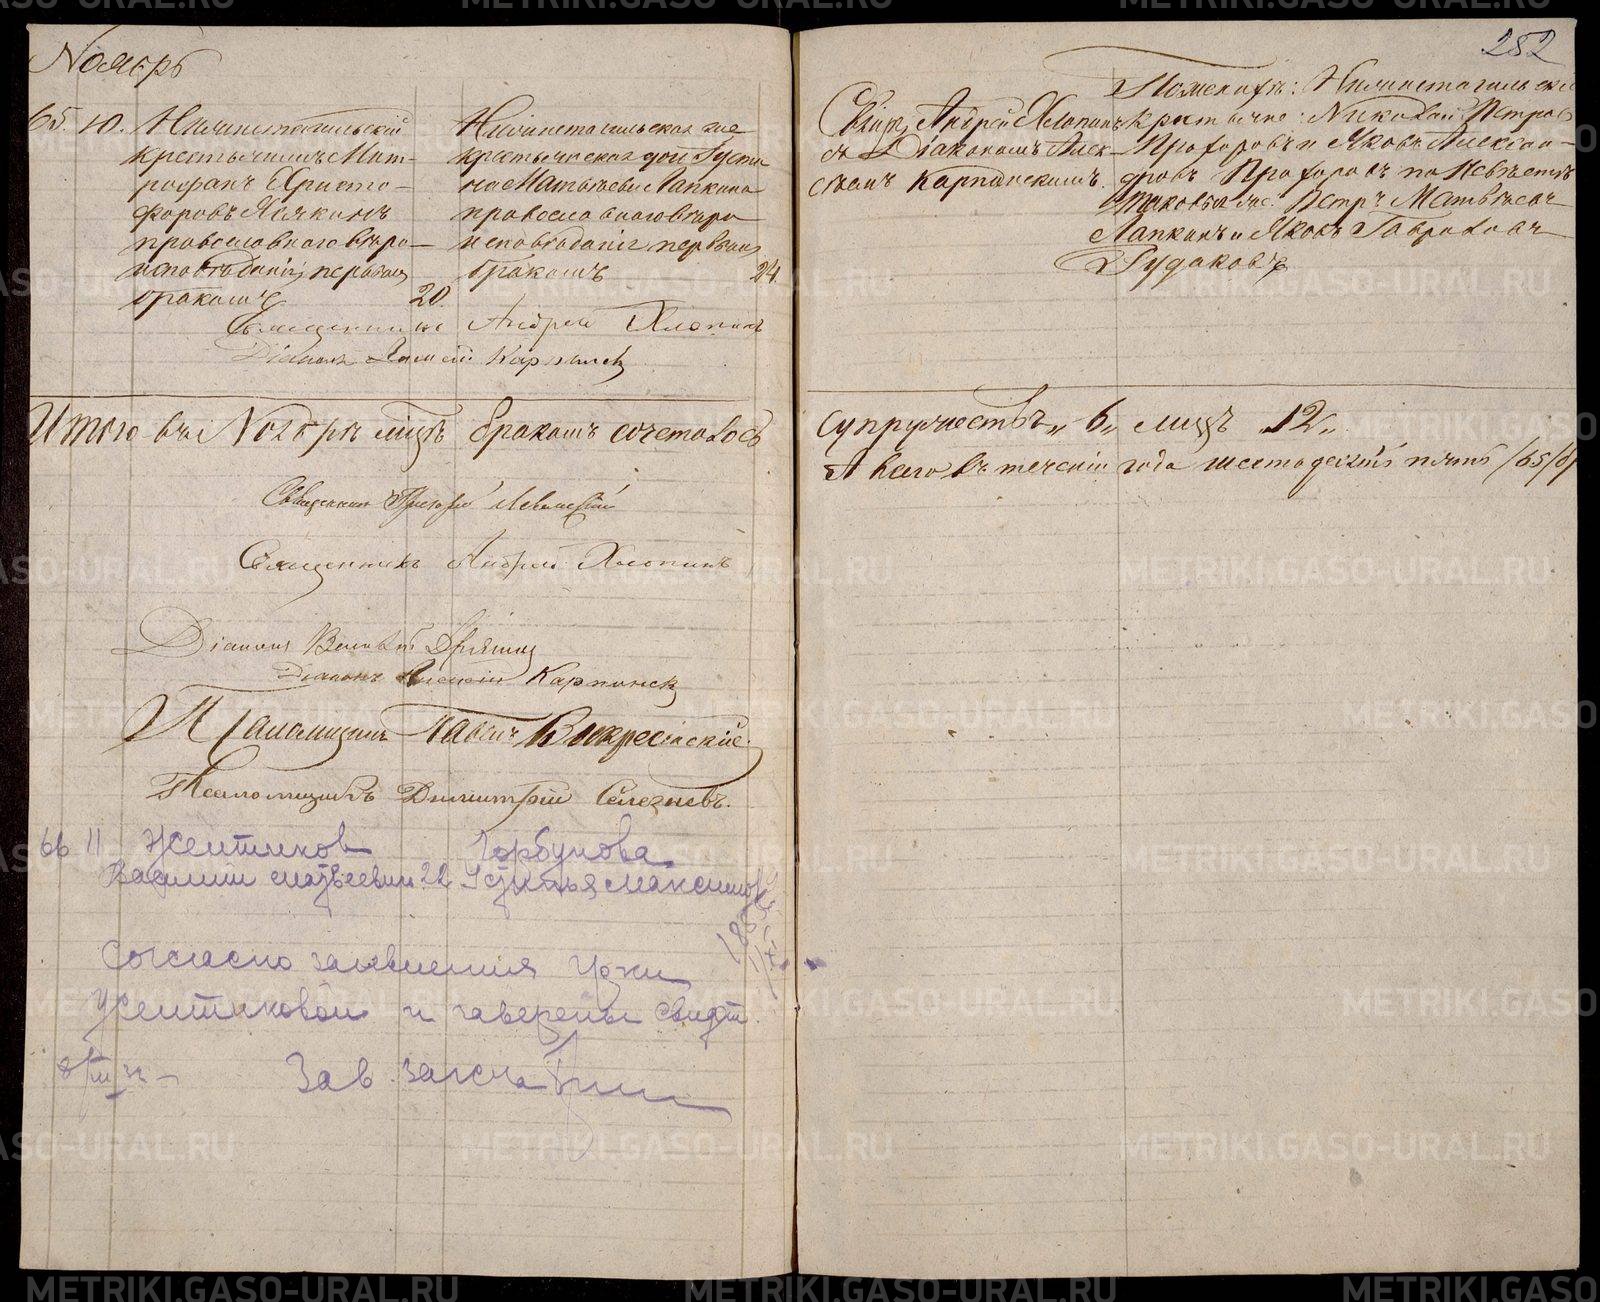 Ноябрь
65. 10. Нижнетагильский
крестьянинъ Мит-
рофанъ Христо-
форовъ Клюкинъ
православнаго веро-
исповѣданія, первымъ
бракомъ 20
Нижнетагильская
крестьянская дочь Іусти-
на Матвѣева Лапкина
православнаго веро
исповѣданія первымъ
бракомъ 24.
Священникъ Андрей Хлопинъ
Діаконъ Алексій Карпинск
Итого въ Ноябрѣ мцѣ бракомъ сочеталось
Священникъ Григорій Левитскій
Священникъ Андрей Хлопинъ
Діаконъ
Діаконъ Алексій Карпинск
Псаломщикъ Павелъ Воскресенскій
Псаломщикъ Димитрій Селезневъ.
66 11 Желтиков Горбунова
Василий Матвеевич 22 Устинья Максимов
Согласно заявления гр-ки
Желтиковой и заверены свидет.
8/III 32 - Зав. загса
252
Свящ. Андрей Хлопинъ
съ Діакономъ Алек-
сѣемъ Карпинскимъ.
По женихѣ: Нижнетагильскіе
крестьяне: Николай Петровъ
Прохоровъ и Яковъ Алексан-
дровъ Прохоровъ по невѣстѣ
таковые же: Петръ Матвѣевъ
Лапкинъ и Яковъ Гавриловъ
Рудаковъ
супружествъ „6„ лицъ „12„.
А всего въ теченіи года шестьдесятъ пять /65/